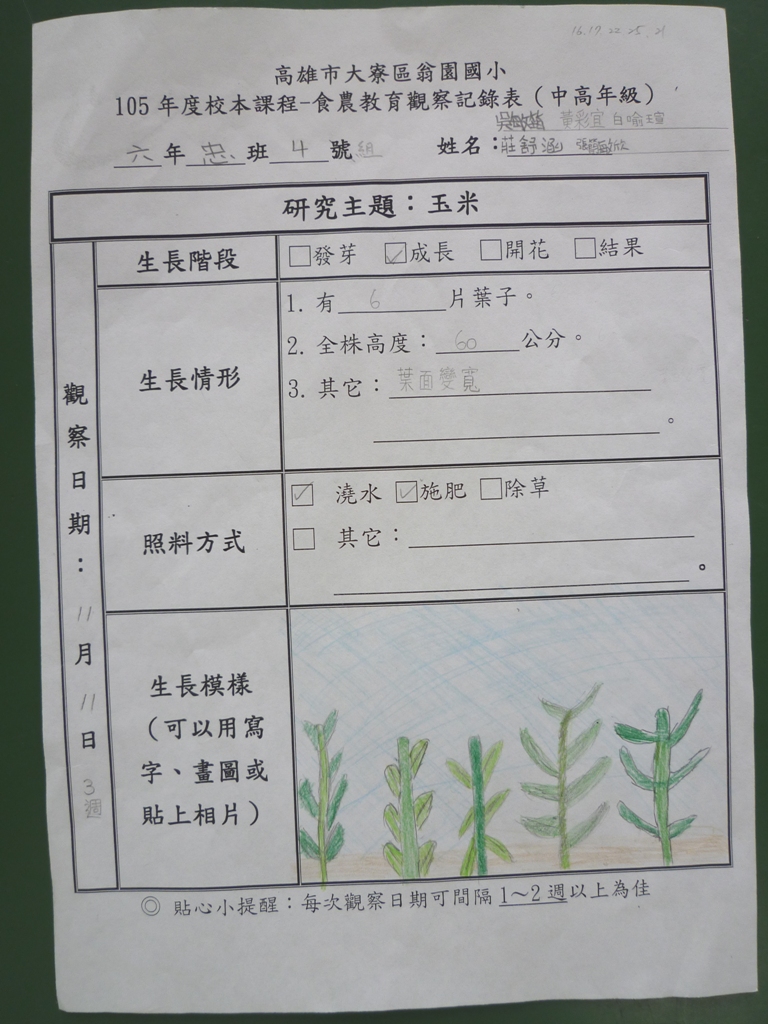 16.17 22 25.21
高雄市大寮區翁園國小
105 年度校本課程-食農教育觀察記錄表（中高年級）
黃彩宜 白喻瑄
六年忠班4號組 姓名：莊舒涵
研究主題：玉米
觀察日期：11月11日3週
生長階段
□發芽 ☑成長 □開花 □結果
生長情形
1. 有 6 片葉子。
2. 全株高度： 60 公分。
3. 其它：葉面變寬
。
照料方式
☑ 澆水 ☑施肥 □除草
□ 其它：
。
生長模樣
（可以用寫
字、畫圖或
貼上相片）
◎ 貼心小提醒：每次觀察日期可間隔 1～2 週以上為佳